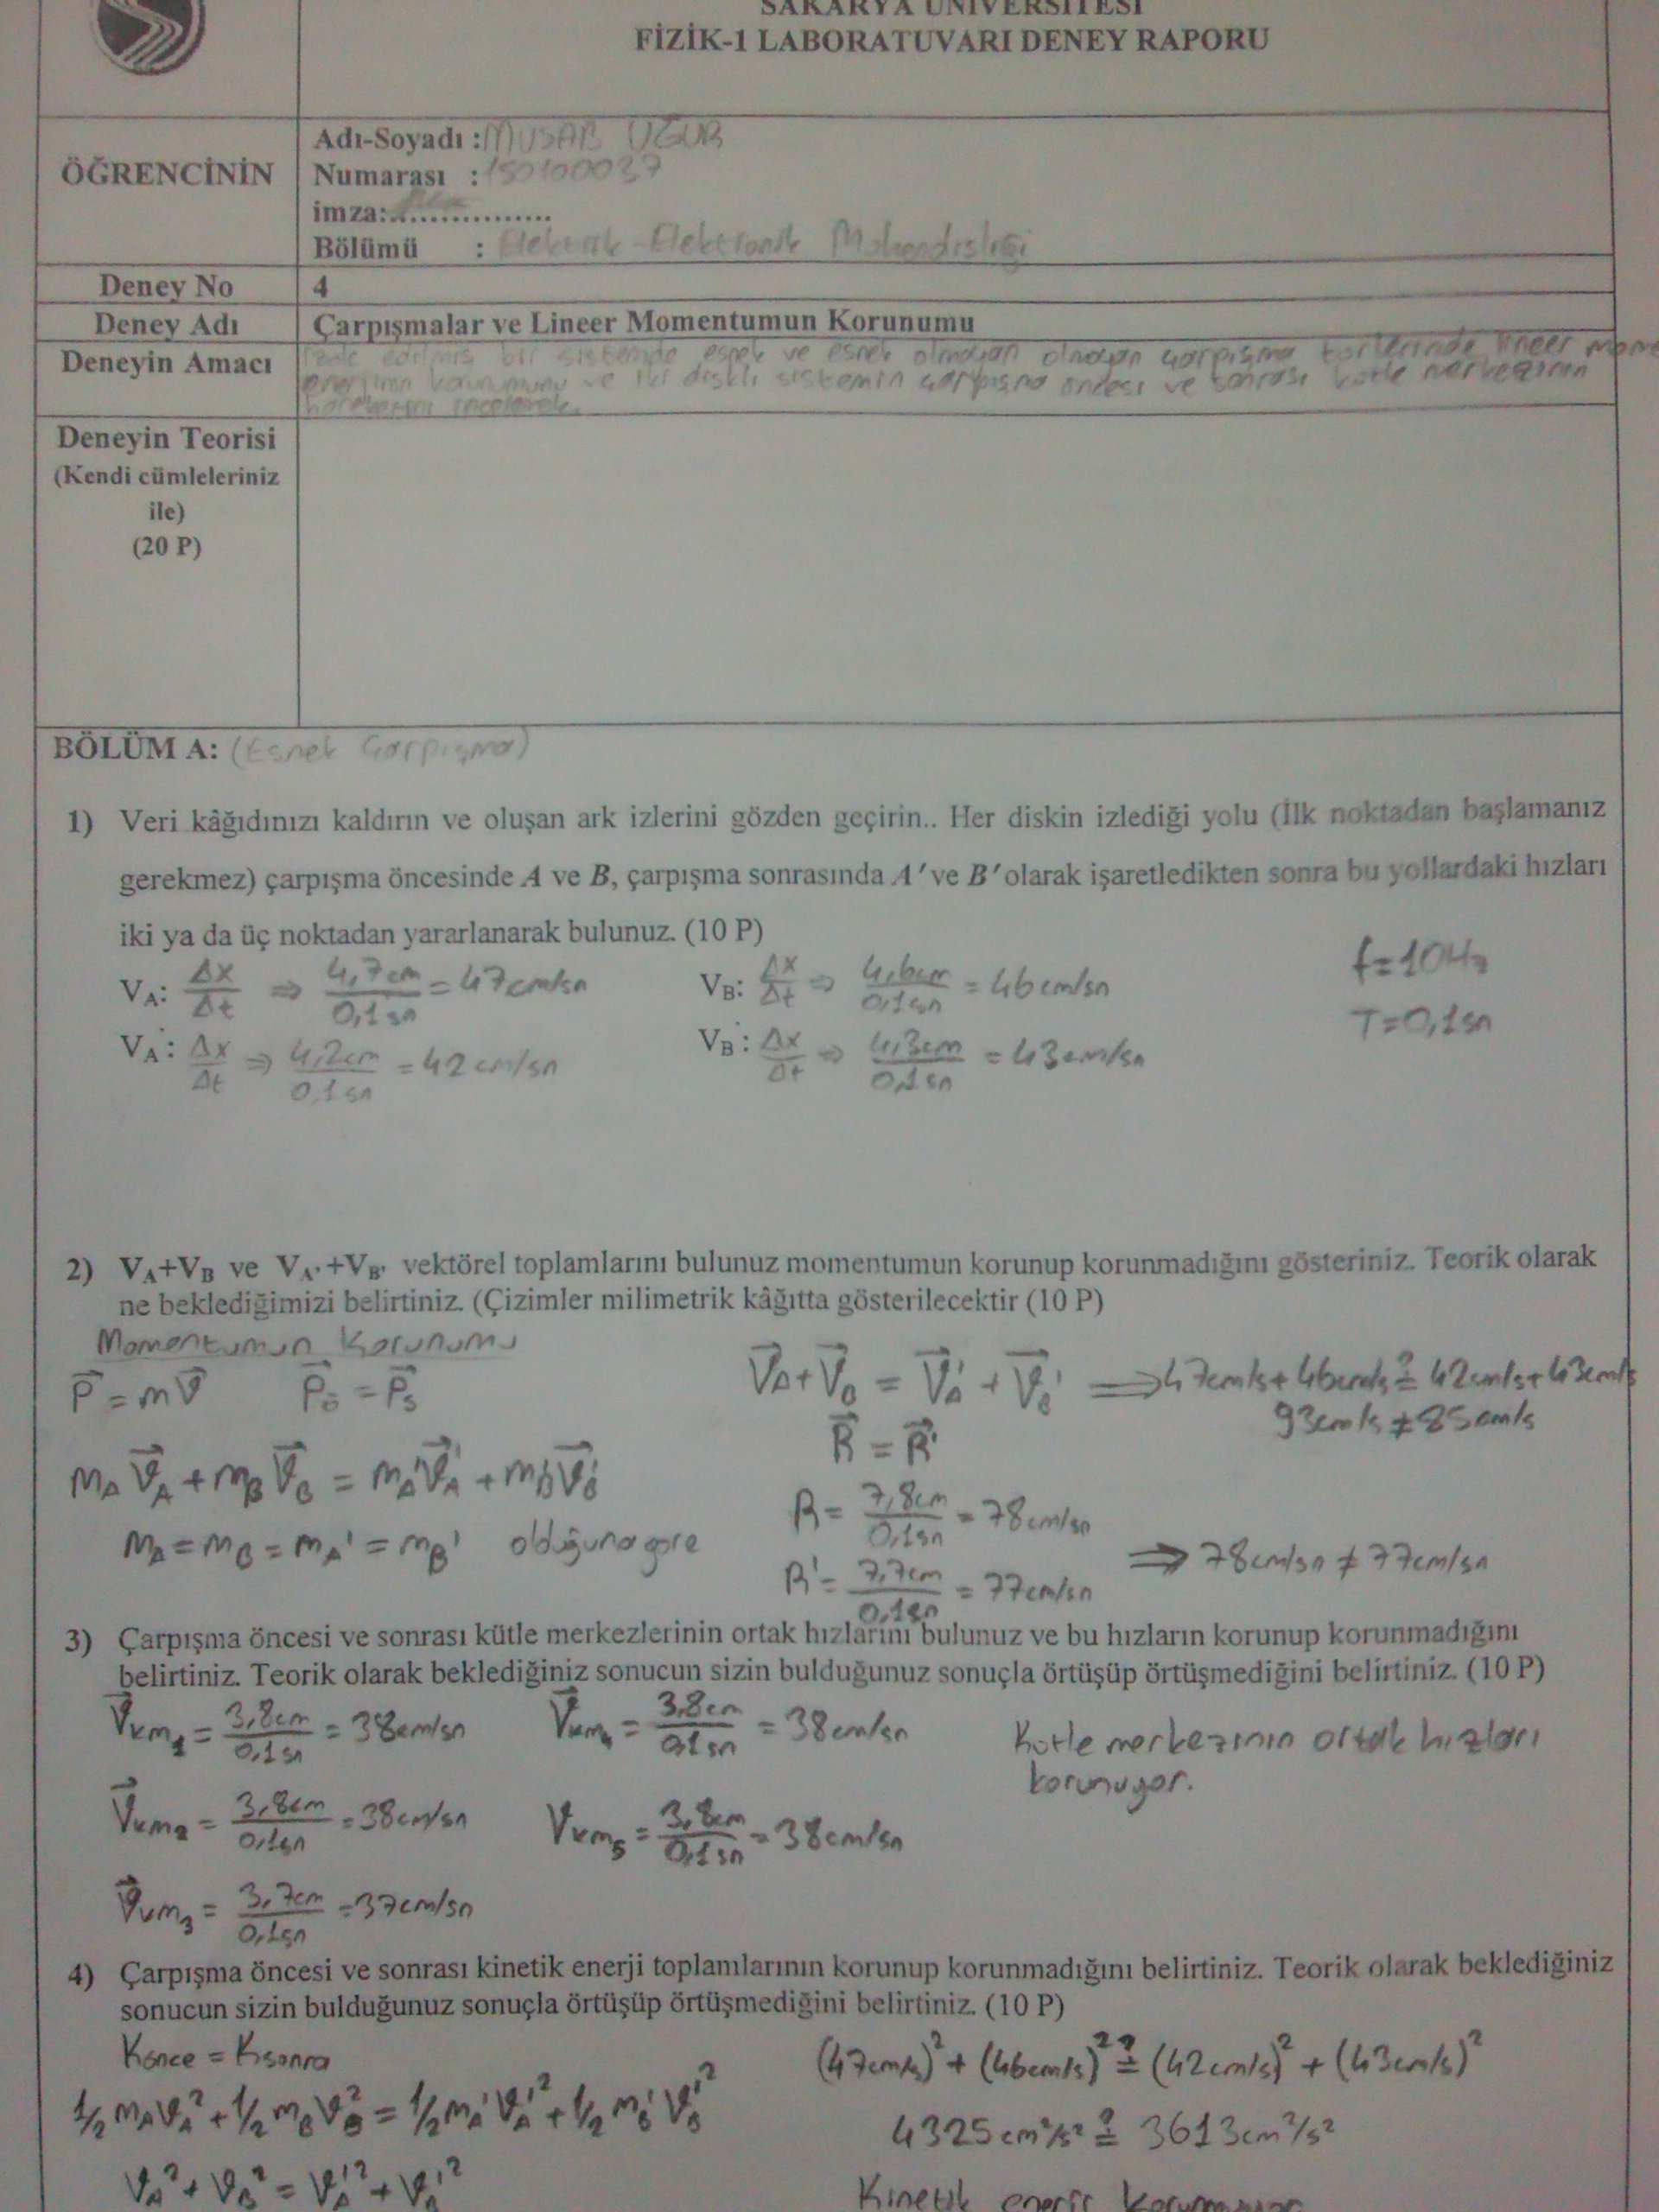 SAKARYA ÜNİVERSİTESİ
FİZİK-1 LABORATUVARI DENEY RAPORU
ÖĞRENCİNİN
Adı-Soyadı : MUSAB UĞUR
Numarası :
imza:...............
Bölümü : Elektrik-Elektronik Mühendisliği
Deney No
4
Deney Adı
Çarpışmalar ve Lineer Momentumun Korunumu
Deneyin Amacı
edilmiş bir sistemde esnek ve esnek olmayan çarpışma lineer
ve iki diskli sistemin çarpışma öncesi ve sonrası kütle merkezinin
incelemek.
Deneyin Teorisi
(Kendi cümleleriniz
ile)
(20 P)
BÖLÜM A: (Esnek Çarpışma)
1) Veri kâğıdınızı kaldırın ve oluşan ark izlerini gözden geçirin.. Her diskin izlediği yolu (İlk noktadan başlamanız
gerekmez) çarpışma öncesinde A ve B, çarpışma sonrasında A' ve B' olarak işaretledikten sonra bu yollardaki hızları
iki ya da üç noktadan yararlanarak bulunuz. (10 P)
V_A: Δx/Δt ⇒ 4,7cm/0,1sn = 47cm/sn V_B: Δx/Δt ⇒ 4,6cm/0,1sn = 46cm/sn
f=10Hz
V_A': Δx/Δt ⇒ 4,2cm/0,1sn = 42cm/sn V_B': Δx/Δt ⇒ 4,3cm/0,1sn = 43cm/sn
T=0,1sn
2) V_A+V_B ve V_A'+V_B' vektörel toplamlarını bulunuz momentumun korunup korunmadığını gösteriniz. Teorik olarak
ne beklediğimizi belirtiniz. (Çizimler milimetrik kâğıtta gösterilecektir (10 P)
Momentumun Korunumu
P = mV P_ö = P_s
m_A V_A + m_B V_B = m_A' V_A' + m_B' V_B'
m_A = m_B = m_A' = m_B' olduğuna göre
V_A + V_B = V_A' + V_B' ⇒ 47cm/s + 46cm/s ≟ 42cm/s + 43cm/s
93cm/s ≠ 85cm/s
R = R'
R = 7,8cm/0,1sn = 78cm/sn
R' = 7,7cm/0,1sn = 77cm/sn
⇒ 78cm/sn ≠ 77cm/sn
3) Çarpışma öncesi ve sonrası kütle merkezlerinin ortak hızlarını bulunuz ve bu hızların korunup korunmadığını
belirtiniz. Teorik olarak beklediğiniz sonucun sizin bulduğunuz sonuçla örtüşüp örtüşmediğini belirtiniz. (10 P)
V_km1 = 3,8cm/0,1sn = 38cm/sn V_km4 = 3,8cm/0,1sn = 38cm/sn
Kütle merkezinin ortak hızları
korunuyor.
V_km2 = 3,8cm/0,1sn = 38cm/sn V_km5 = 3,8cm/0,1sn = 38cm/sn
V_km3 = 3,7cm/0,1sn = 37cm/sn
4) Çarpışma öncesi ve sonrası kinetik enerji toplamlarının korunup korunmadığını belirtiniz. Teorik olarak beklediğiniz
sonucun sizin bulduğunuz sonuçla örtüşüp örtüşmediğini belirtiniz. (10 P)
Könce = Ksonra
½ m_A V_A² + ½ m_B V_B² = ½ m_A' V_A'² + ½ m_B' V_B'²
V_A² + V_B² = V_A'² + V_B'²
(47cm/s)² + (46cm/s)² ≟ (42cm/s)² + (43cm/s)²
4325cm²/s² ≟ 3613cm²/s²
Kinetik enerji